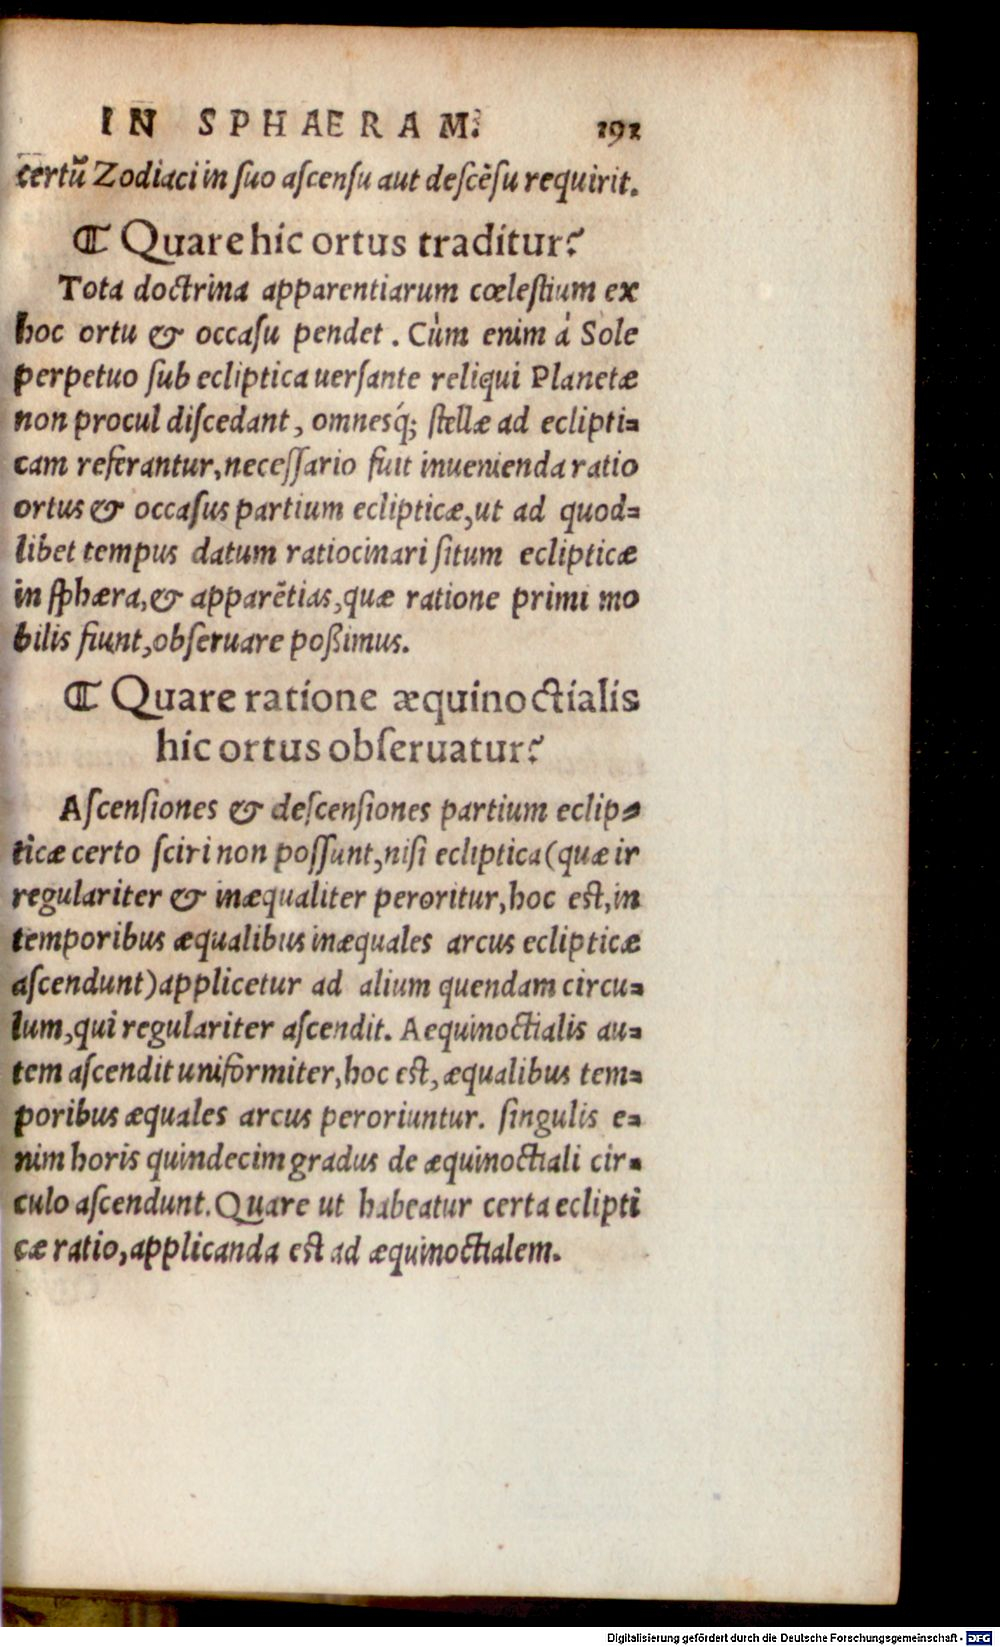 IN SPHAERAM. 191
certū Zodiaci in ſuo aſcenſu aut deſcēſu requirit.
¶ Quare hic ortus traditur?
Tota doctrina apparentiarum cœleſtium ex
hoc ortu & occaſu pendet. Cùm enim à Sole
perpetuo ſub ecliptica uerſante reliqui Planetæ
non procul diſcedant, omnesq́; ſtellæ ad eclipti=
cam referantur, neceſſario fuit inuenienda ratio
ortus & occaſus partium eclipticæ, ut ad quod=
libet tempus datum ratiocinari ſitum eclipticæ
in ſphæra, & apparētias, quæ ratione primi mo
bilis fiunt, obſeruare poßimus.
¶ Quare ratione æquinoctialis
hic ortus obſeruatur?
Aſcenſiones & deſcenſiones partium eclip=
ticæ certo ſciri non poſſunt, niſi ecliptica (quæ ir
regulariter & inæqualiter peroritur, hoc eſt, in
temporibus æqualibus inæquales arcus eclipticæ
aſcendunt) applicetur ad alium quendam circu=
lum, qui regulariter aſcendit. Aequinoctialis au=
tem aſcendit uniformiter, hoc eſt, æqualibus tem=
poribus æquales arcus peroriuntur. ſingulis e=
nim horis quindecim gradus de æquinoctiali cir=
culo aſcendunt. Quare ut habeatur certa eclipti
cæ ratio, applicanda eſt ad æquinoctialem.
Digitalisierung gefördert durch die Deutsche Forschungsgemeinschaft - DFG